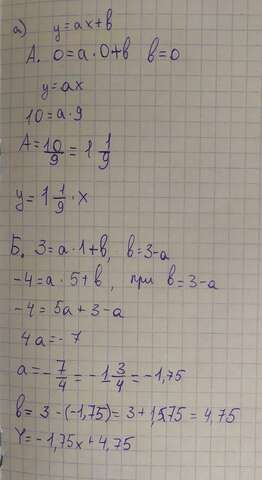 а) y=ax+b
А. 0=a·0+b b=0
y=ax
10=a·9
A=10/9=1 1/9
y=1 1/9·x
Б. 3=a·1+b, b=3-a
-4=a·5+b, при b=3-a
-4=5a+3-a
4a=-7
a=-7/4=-1 3/4=-1,75
b=3-(-1,75)=3+1,75=4,75
Y=-1,75x+4,75